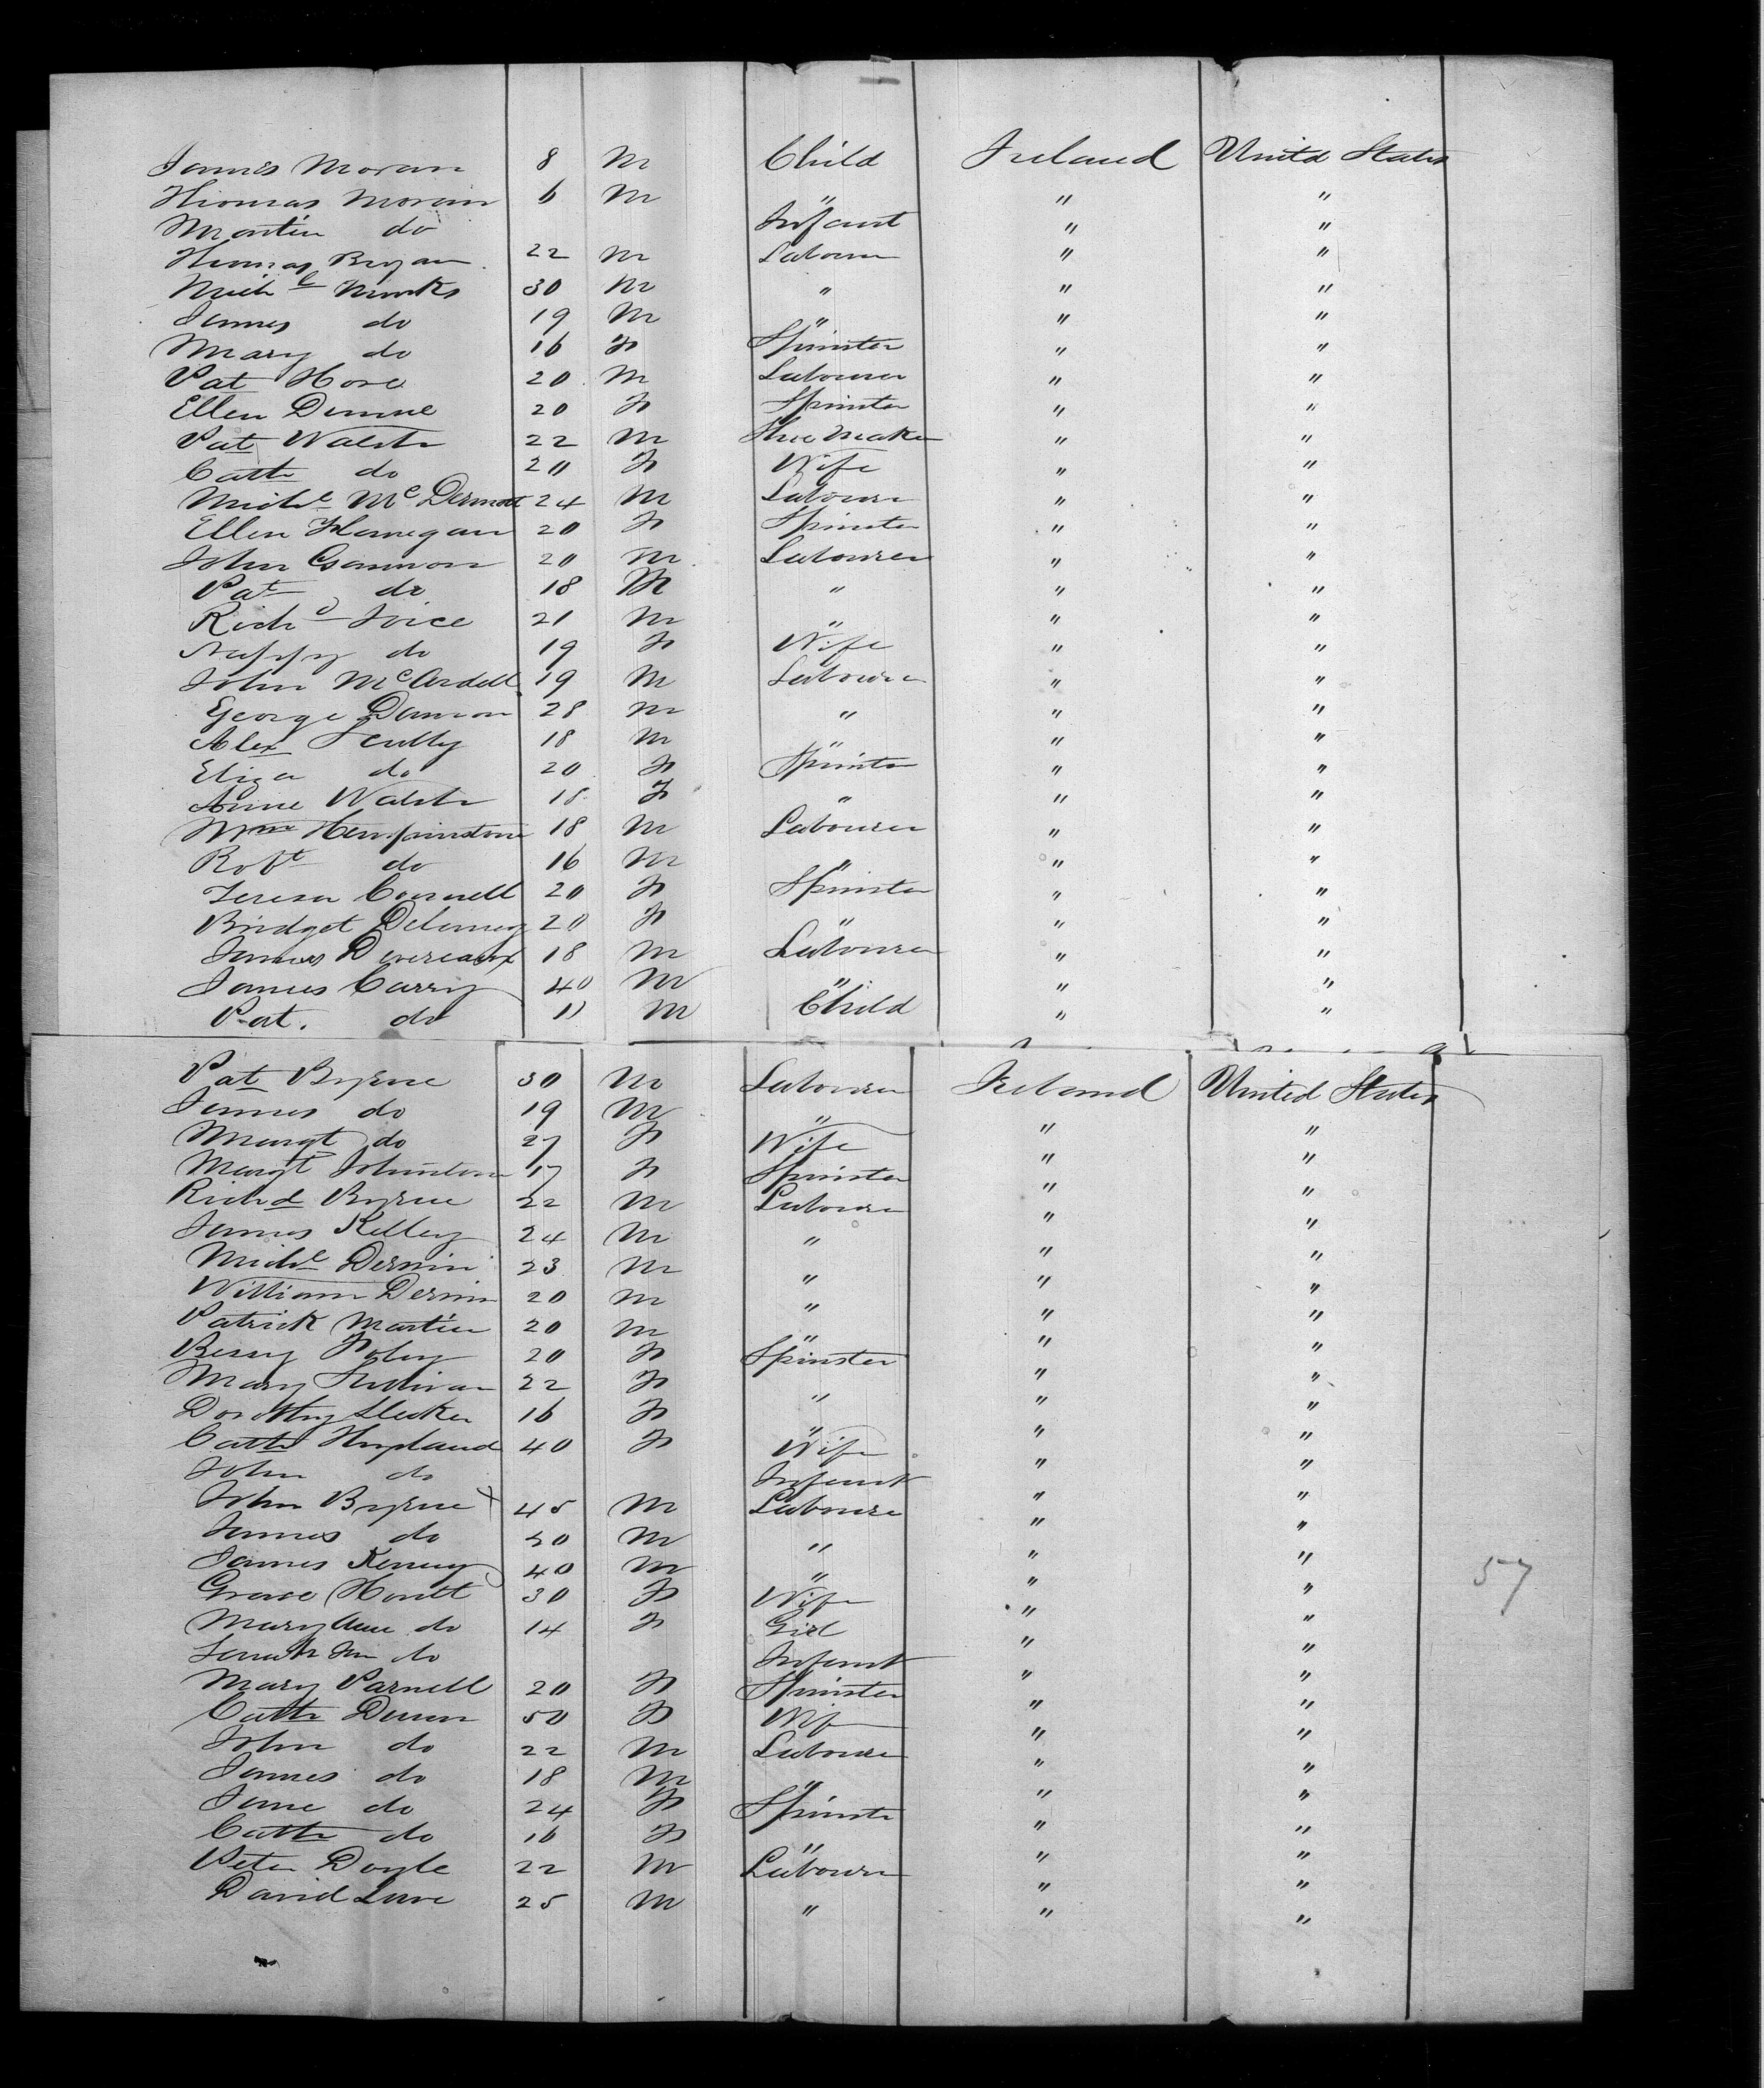 James Moran 8 M Child Ireland United States
Thomas Moran 6 M " " "
Martin do Infant " "
Thomas Bryan 22 M Labourer " "
Mich^l Monks 30 M " " "
James do 19 M " " "
Mary do 16 F Spinster " "
Pat Hore 20 M Labourer " "
Ellen Dunne 20 F Spinster " "
Pat Walsh 22 M Shoe Maker " "
Cath do 20 F Wife " "
Mich^l McDermott 24 M Labourer " "
Ellen Flanegan 20 F Spinster " "
John Gannon 20 M Labourer " "
Pat do 18 M " " "
Rich^d Joice 21 M " " "
Nappy do 19 F Wife " "
John McArdell 19 M Labourer " "
George Damon 28 M " " "
Alex Scully 18 M " " "
Eliza do 20 F Spinster " "
Anne Walsh 18 F " " "
Wm Hempinstone 18 M Labourer " "
Robt do 16 M " " "
Teresa Connell 20 F Spinster " "
Bridget Delaney 20 F " " "
James Devereaux 18 M Labourer " "
James Carry 40 M " " "
Pat. do 11 M Child " "
Pat Byrne 30 M Labourer Ireland United States
James do 19 M " " "
Margt do 27 F Wife " "
Margt Johnston 17 F Spinster " "
Richd Byrne 22 M Labourer " "
James Kelley 24 M " " "
Mich^l Dernin 23 M " " "
William Dernin 20 M " " "
Patrick Martin 20 M " " "
Bessy Foley 20 F Spinster " "
Mary Sullivan 22 F " " "
Dorothy 16 F " " "
Cath Hyland 40 F Wife " "
John do Infant " "
John Byrne 45 M Labourer " "
James do 50 M " " "
James Kenny 40 M " " "
Grace Howlt 30 F Wife " "
Mary Ann do 14 F Girl " "
Sarah do Infant " "
57
Mary Parnell 20 F Spinster " "
Cath Dunn 50 F Wife " "
John do 22 M Labourer " "
James do 18 M " " "
Jane do 24 F Spinster " "
Cath do 16 F " " "
Peter Doyle 22 M Labourer " "
David Lane 25 M " " "